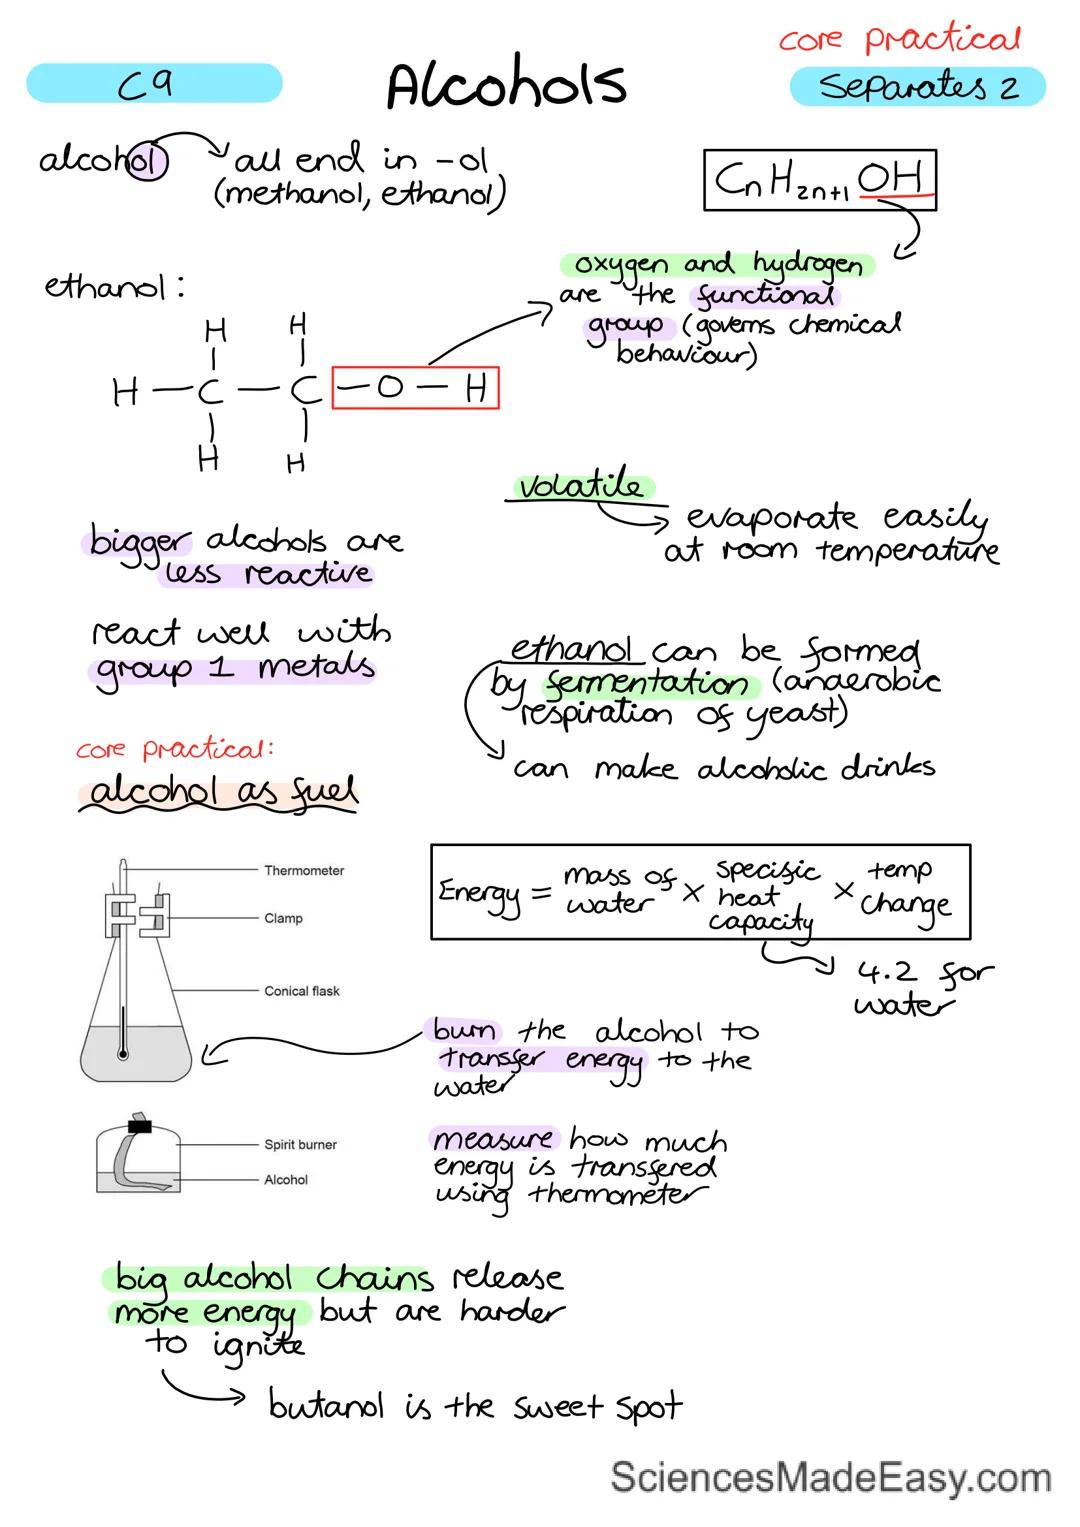 core practical
C9
Alcohols
Separates 2
alcohol
all end in -ol
(methanol, ethanol)
CnH2n+1 OH
ethanol:
oxygen and hydrogen
are the functional
group (governs chemical
behaviour)
H H
H — C — C — O — H
H H
volatile
evaporate easily
at room temperature
bigger alcohols are
less reactive
react well with
group 1 metals
ethanol can be formed
by fermentation (anaerobic
respiration of yeast)
can make alcoholic drinks
core practical:
alcohol as fuel
Thermometer
Clamp
Conical flask
Spirit burner
Alcohol
Energy = mass of water × specific heat capacity × temp change
4.2 for
water
burn the alcohol to
transfer energy to the
water
measure how much
energy is transfered
using thermometer
big alcohol chains release
more energy but are harder
to ignite
butanol is the sweet spot
SciencesMadeEasy.com